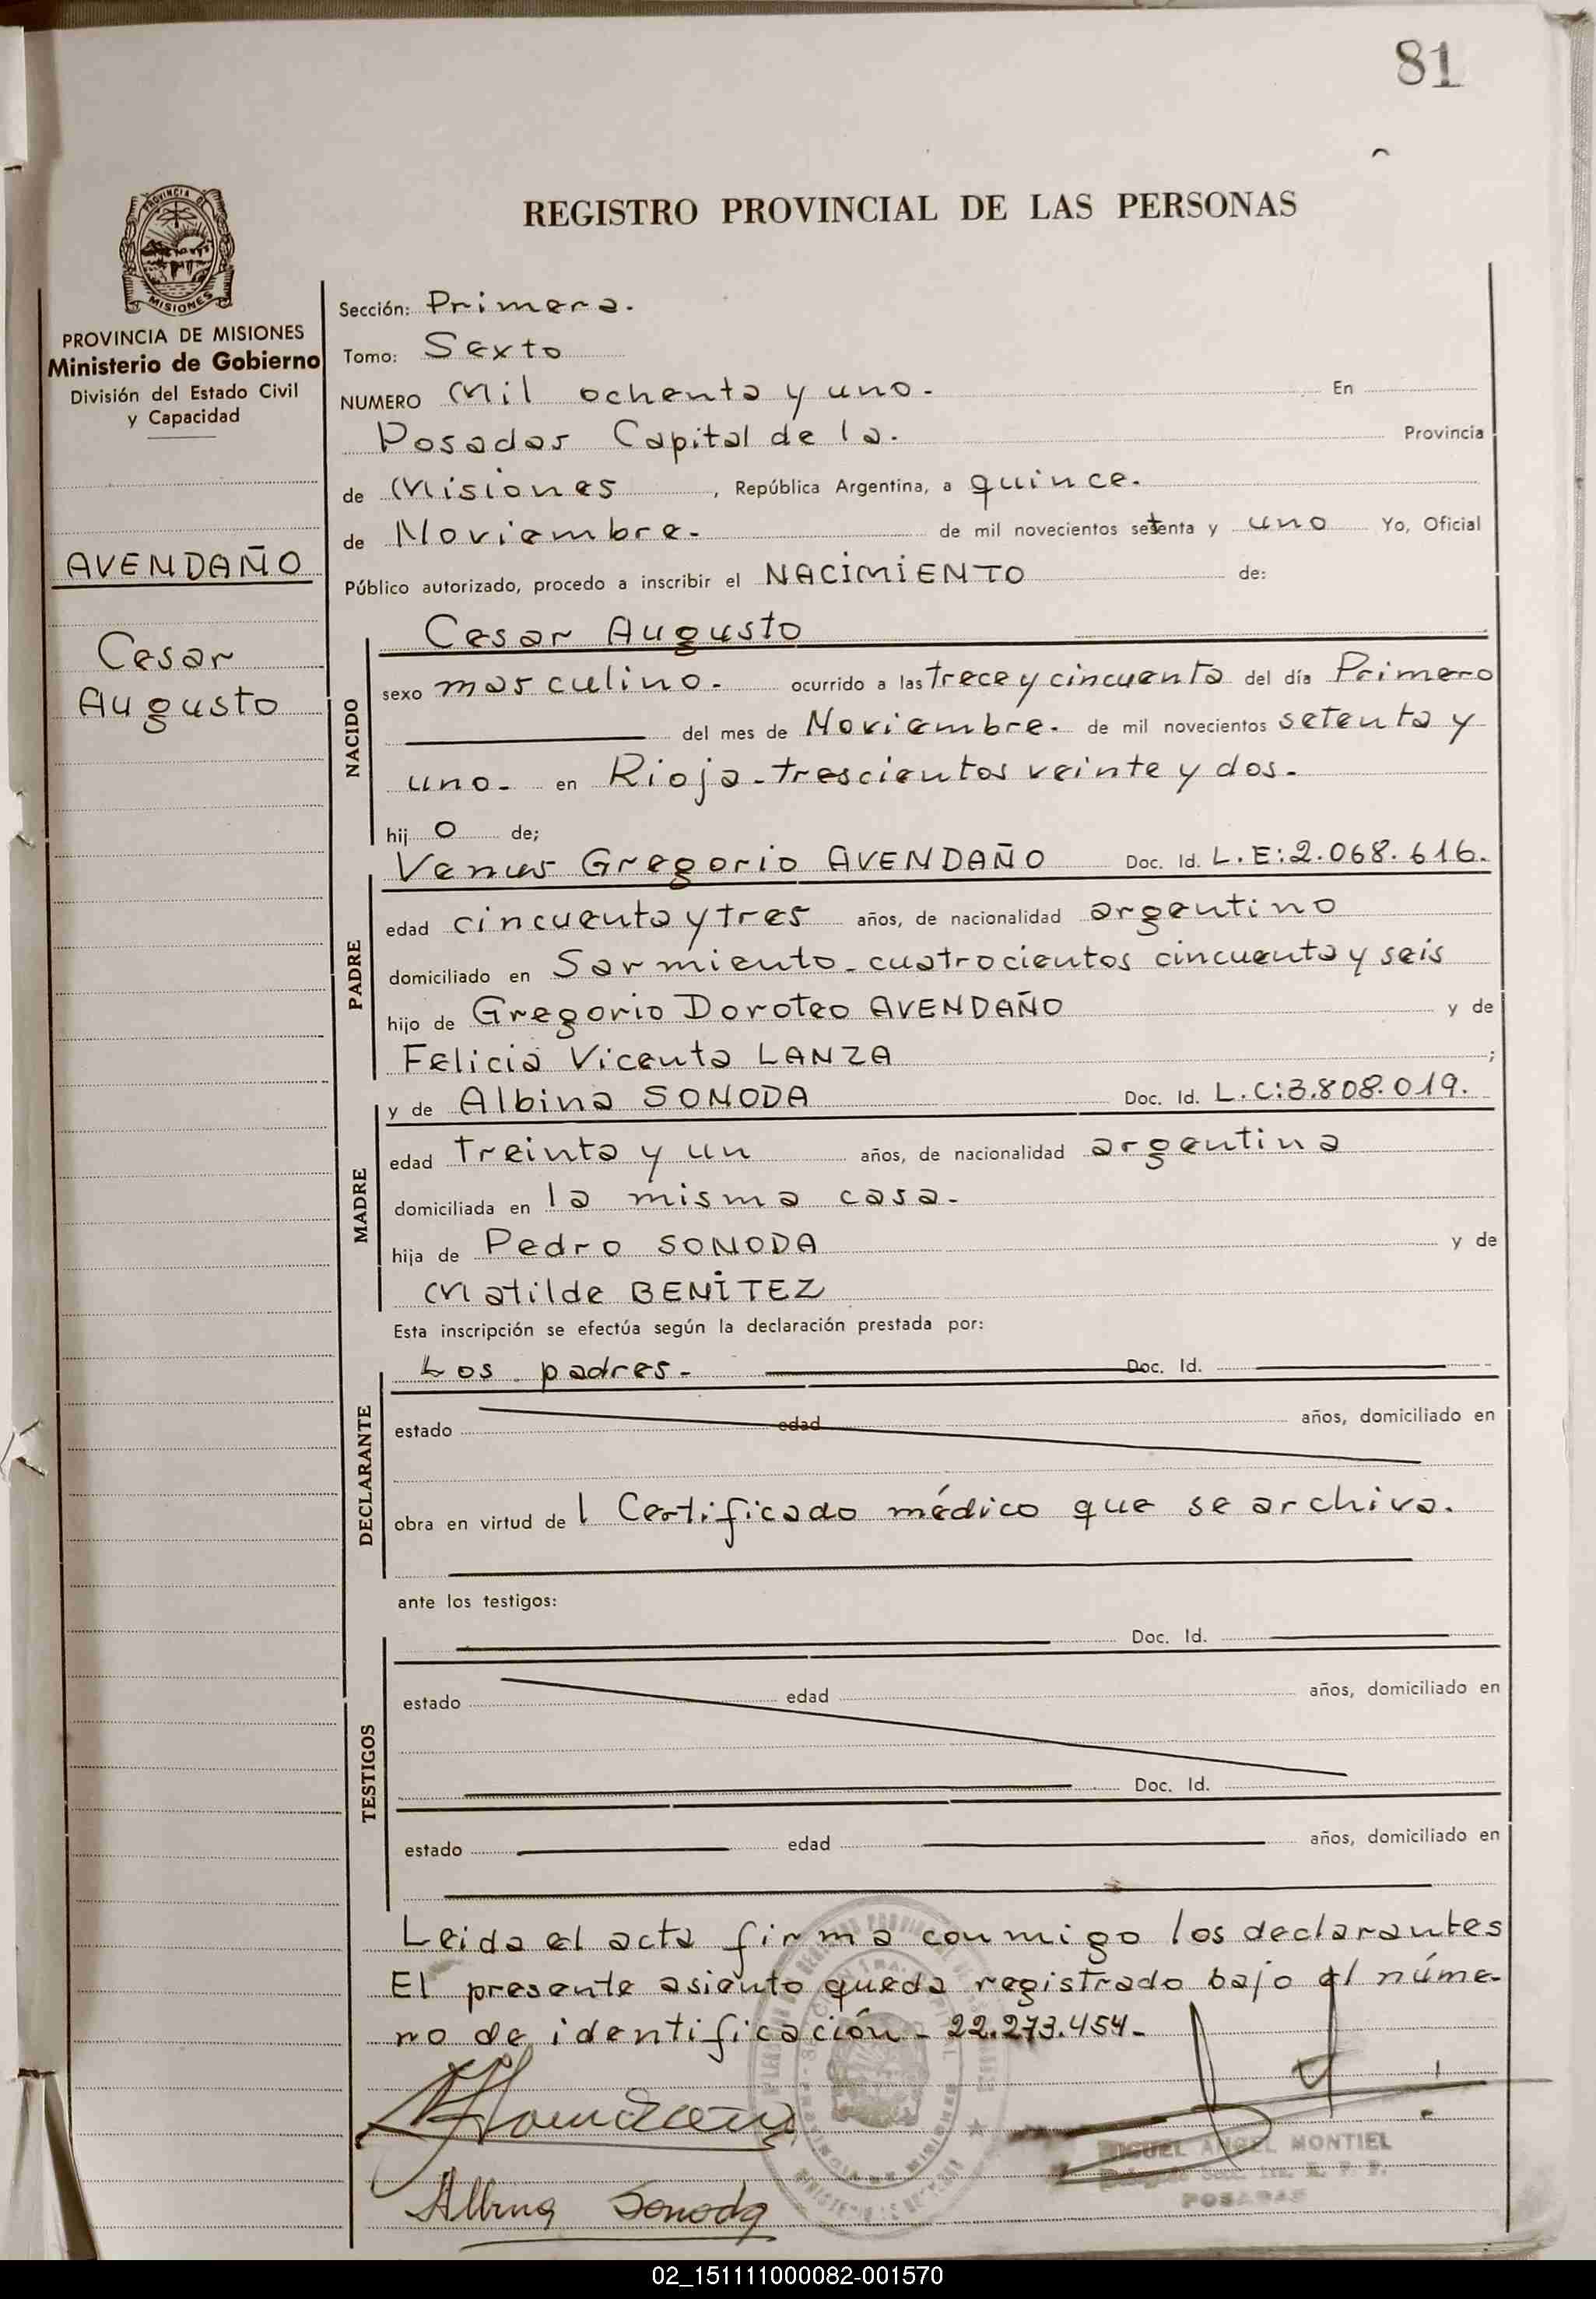 81
REGISTRO PROVINCIAL DE LAS PERSONAS
PROVINCIA DE
MISIONES
PROVINCIA DE MISIONES
Ministerio de Gobierno
División del Estado Civil
y Capacidad
AVENDAÑO
Cesar
Augusto
Sección: Primera.
Tomo: Sexto
NUMERO Mil ochenta y uno. En
Posadas Capital de la. Provincia
de Misiones, República Argentina, a quince.
de Noviembre. de mil novecientos setenta y uno Yo, Oficial
Público autorizado, procedo a inscribir el NACIMIENTO de:
NACIDO
Cesar Augusto
sexo masculino. ocurrido a las trece y cincuenta del día Primero
del mes de Noviembre. de mil novecientos setenta y
uno. en Rioja-trescientos veinte y dos.
hij o de;
PADRE
Venus Gregorio AVENDAÑO Doc. Id. L.E:2.068.616.
edad cincuenta y tres años, de nacionalidad argentino
domiciliado en Sarmiento-cuatrocientos cincuenta y seis
hijo de Gregorio Doroteo AVENDAÑO y de
Felicia Vicenta LANZA ;
MADRE
y de Albina SONODA Doc. Id. L.C:3.808.019.
edad treinta y un años, de nacionalidad argentina
domiciliada en la misma casa.
hija de Pedro SONODA y de
Matilde BENITEZ
Esta inscripción se efectúa según la declaración prestada por:
DECLARANTE
Los padres. Doc. Id.
estado edad años, domiciliado en
obra en virtud de l Certificado médico que se archiva.
ante los testigos:
TESTIGOS
Doc. Id.
estado edad años, domiciliado en
Doc. Id.
estado edad años, domiciliado en
Leida el acta firma conmigo los declarantes
El presente asiento queda registrado bajo el núme-
ro de identificación - 22.273.454-
MIGUEL ANGEL MONTIEL
POSADAS
Albina Sonoda
02_151111000082-001570